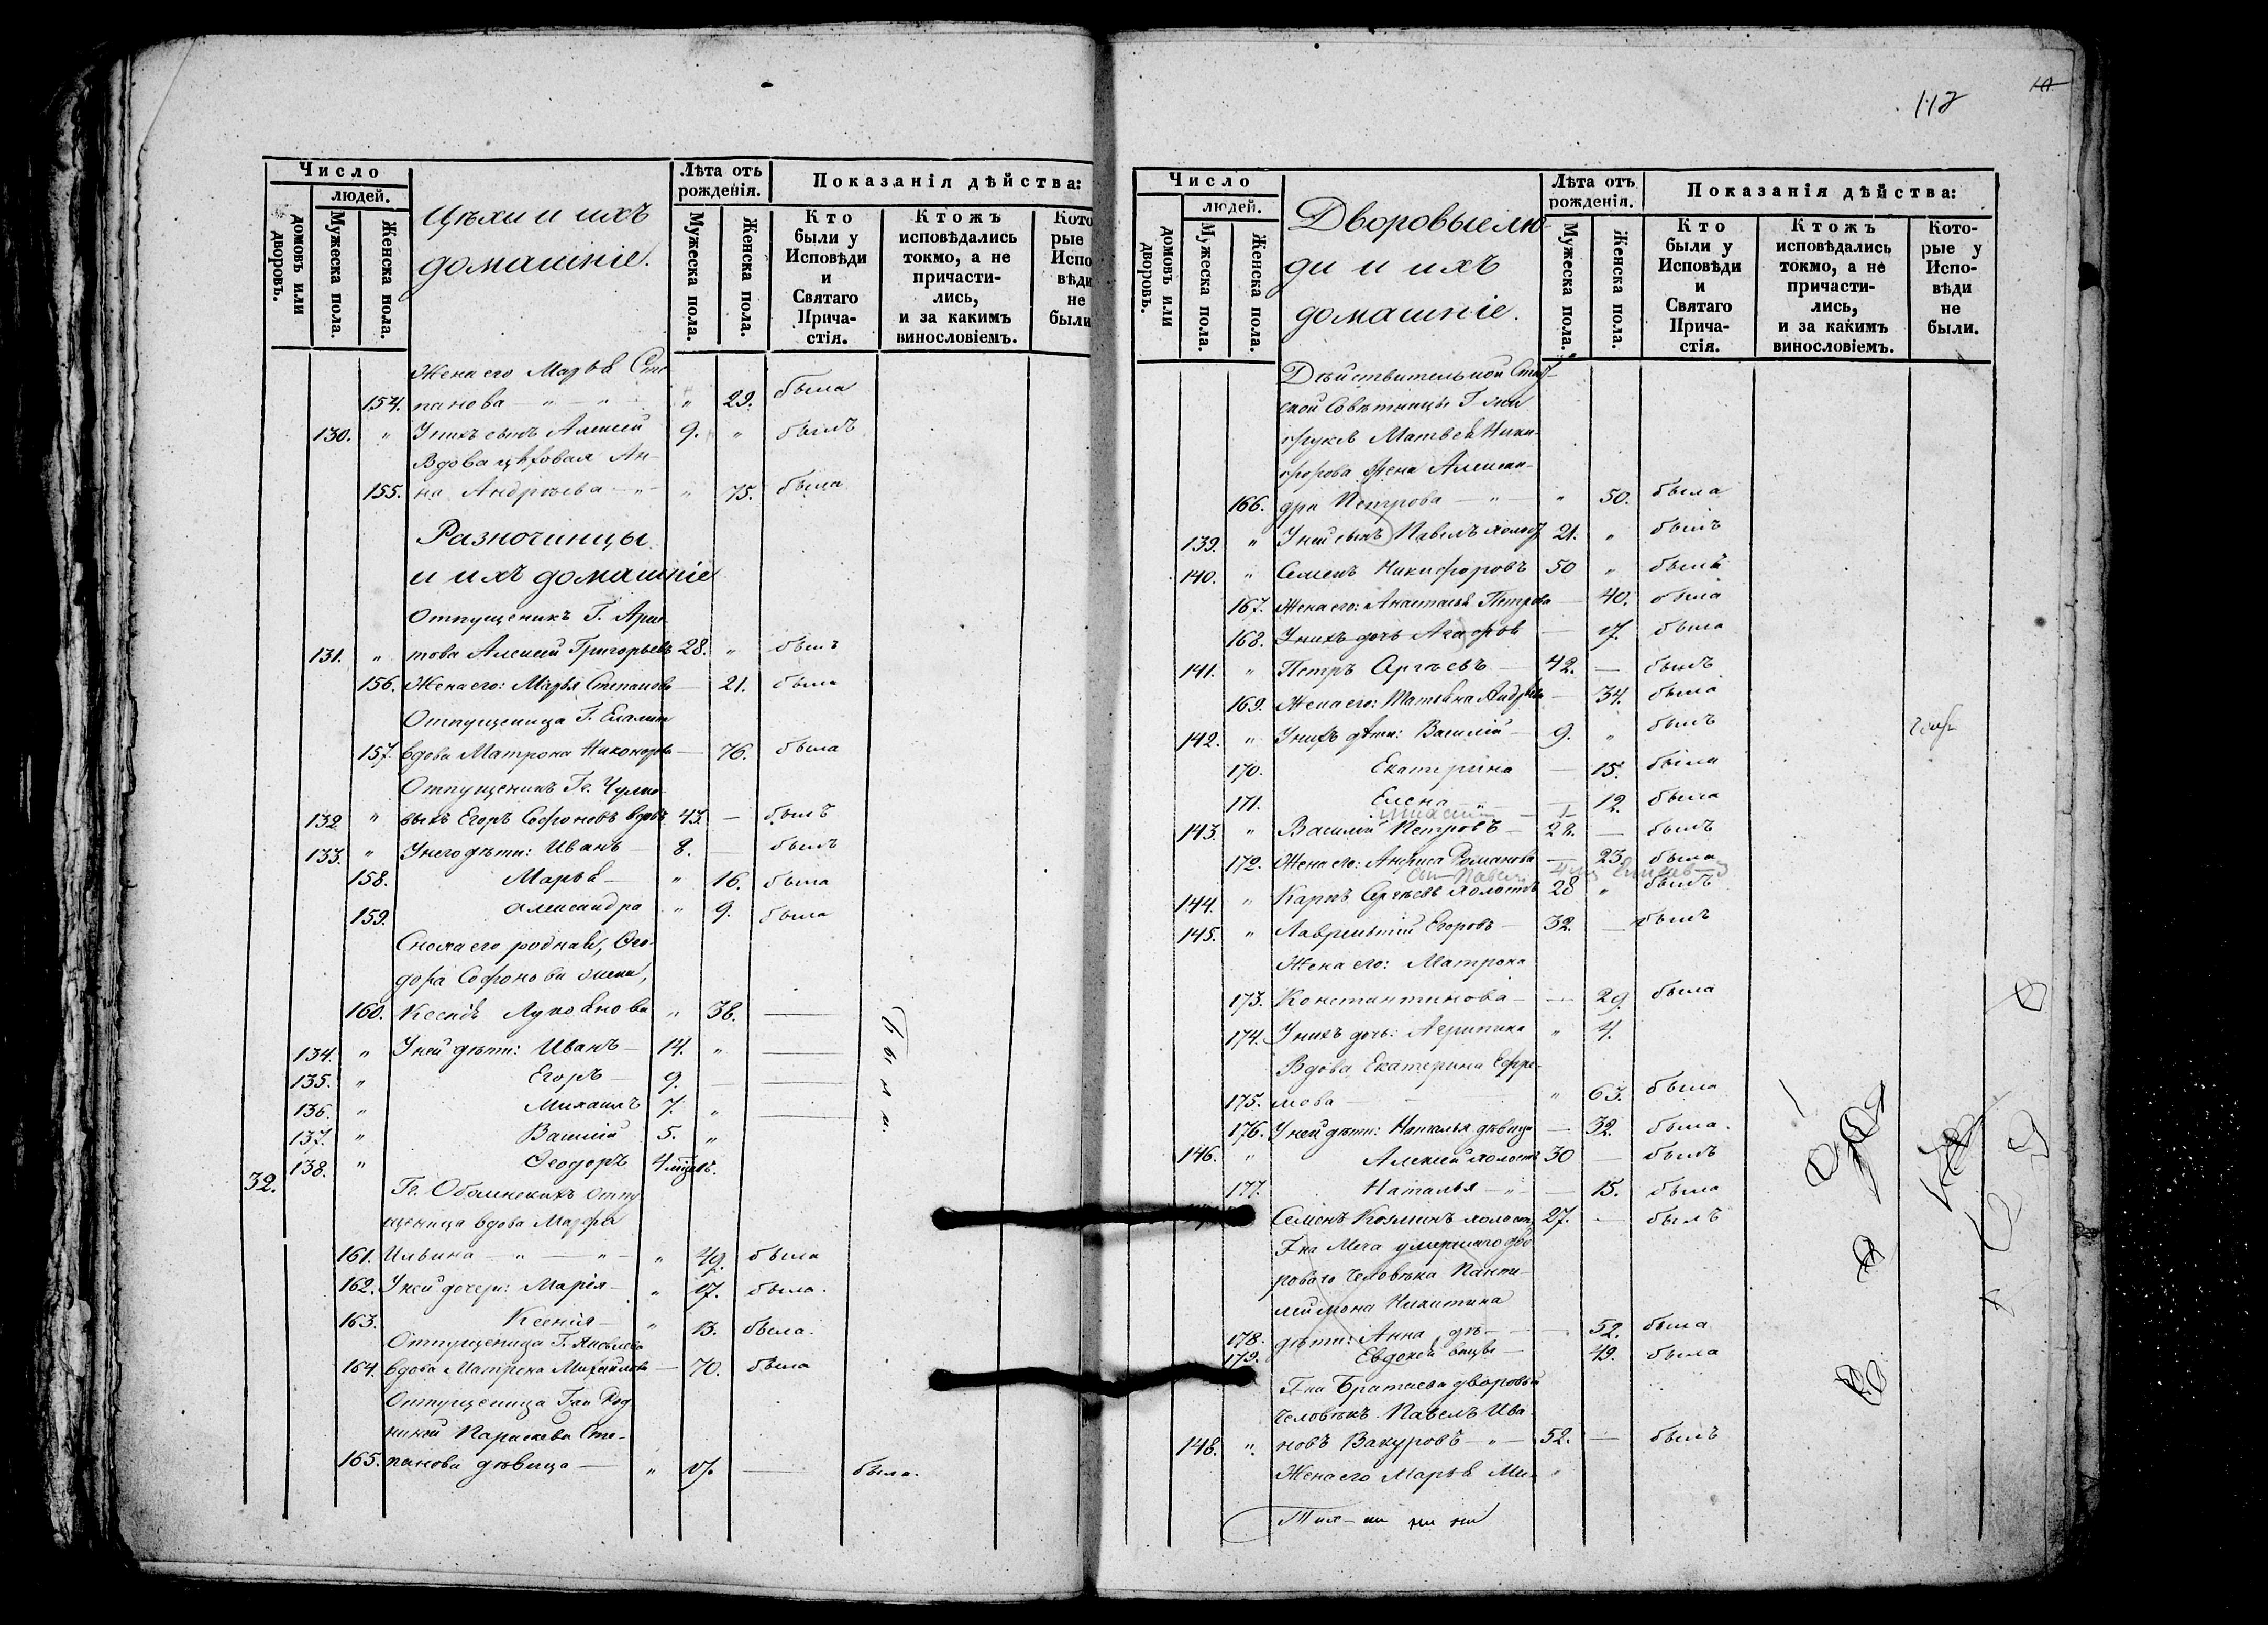 Число
людей.
домовъ или дворовъ.
Мужеска пола.
Женска пола.
Цѣхи и ихъ
домашніе.
Лѣта отъ рожденія.
Мужеска пола.
Женска пола.
Показанія дѣйства:
Кто были у Исповѣди и Святаго Прича-стія.
Ктожъ исповѣдались токмо, а не причасти-лись, и за какимъ винословіемъ.
Кото рые Испо вѣди не были
Жена его Марья Сте
154. панова — " — " " 29. была
130. " У нихъ сынъ Алексій 9. " былъ
Вдова цѣховая Ан-
155. на Андрѣева — " — " 75. была
Разночинцы
и ихъ домашніе
Отпущеникъ Г.
131. " Алексій Григорьевъ 28. " былъ
156. Жена его: Марья Степанова — 21. была
Отпущеница Г.
157. вдова Матрона Никонорова — 76. была
Отпущеникъ Гг. Чулко-
132 " выхъ Егоръ Софроновъ вдовъ 43. — былъ
133. " У него дѣти: Иванъ — 8. — былъ
158. Марья — " 16. была
159. Александра " 9. была
Сноха его родная, Ѳео-
дора Софронова жена,
160. Ксенія Лукоянова " 38. —
134. " У ней дѣти: Иванъ — 14. " —
135. " Егоръ — 9. — —
136. " Михаилъ 7. " —
137. " Василій 5. "
138. " Ѳеодоръ 4 мѣсяц.
были.
32.
Гг. Оболенскихъ отпу
щеница вдова Марфа
161. Ильина — " — " — " 49. была
162. У ней дочери: Марія — " 17. была.
163. Ксенія — " 13. была.
Отпущеница Г. Яковлева
164. вдова Матрена Михайлова — 70. была
Отпущеница Г-жи
Параскева Сте-
165. панова дѣвица — " 17. — была.
112
Число
людей.
домовъ или дворовъ.
Мужеска пола.
Женска пола.
Дворовые лю-
ди и ихъ
домашніе.
Лѣта отъ рожденія.
Мужеска пола.
Женска пола.
Показанія дѣйства:
Кто были у Исповѣди и Святаго Прича-стія.
Ктожъ исповѣдались токмо, а не причасти-лись, и за какимъ винословіемъ.
Кото-рые у Испо-вѣди не были.
Дѣйствительной Стат-
ской Совѣтницы
Матвея Ники-
форова жена Алексан-
166. дра Петрова — " — " 50. была
139. " У ней сынъ Павелъ холост 21. " былъ
140. " Семенъ Никифоровъ 50 " былъ
167. Жена его: Анастасья Петрова — 40. была
168. У нихъ дочь Агафья — 17. была
141. " Петръ Сергѣевъ — 42. — былъ
169. Жена его: Татьяна Андрѣева — 34. была
142. " У нихъ дѣти: Василій — 9. " былъ
170. Екатерина — 15. была
171. Елена — " — 12. была
143. " Василій Петровъ — 22. — былъ
172. Жена его: Анфиса Романова — 23. была
144. " Карпъ Сергѣевъ холостъ 28 " былъ
145. " Лаврентій Егоровъ — 32. — былъ
Жена его: Матрона
173. Константинова — — 29. была
174. У нихъ дочь: Агрипина " 4.
Вдова Екатерина Ефре-
175. мова — " 63. была
176. У ней дѣти: Наталья дѣвица — 32. была.
146. " Алексій холостъ 30 — былъ
177. Наталья — " — 15. была
Семенъ Козминъ холостъ 27. — былъ
Г-на Меча умершаго дво
роваго человѣка Панте-
леймона Никитина
178. дѣти: Анна, дѣ- — 52. была
179. Евдокія вицы — 49. была
Г-на Братцева дворовый
человѣкъ Павелъ Ива-
148. " новъ Вакуровъ — " — 52. — былъ
Жена его Марья Ми- "